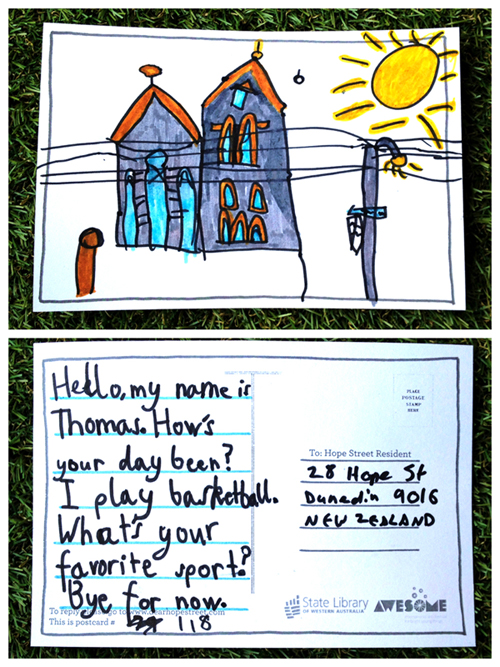 Hello, my name is
Thomas. How's
your day been?
I play basketball.
What's your
favorite sport?
Bye for now.
This is postcard # 118
PLACE
POSTAGE
STAMP
HERE
To: Hope Street Resident
28 Hope St
Dunedin 9016
NEW ZEALAND
State Library
OF WESTERN AUSTRALIA
AWESOME